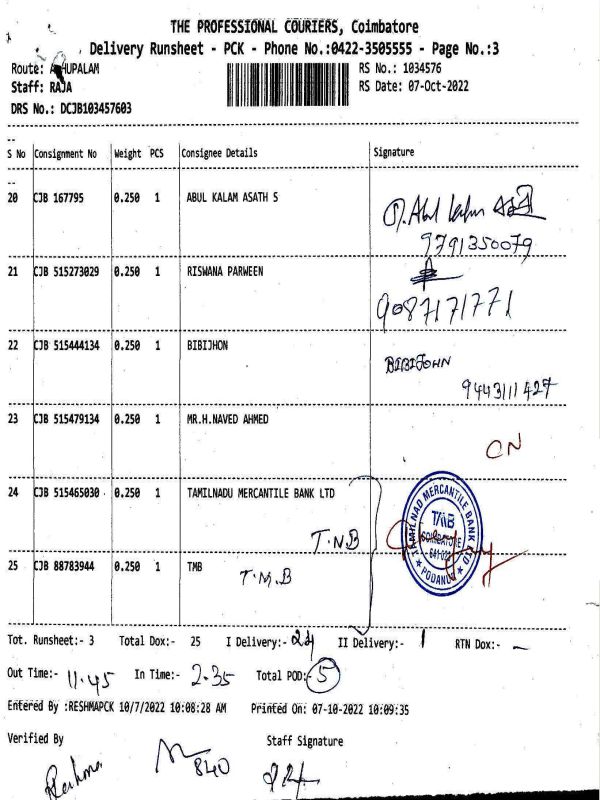 THE PROFESSIONAL COURIERS, Coimbatore
Delivery Runsheet - PCK - Phone No.:0422-3505555 - Page No.:3
Route: HUPALAM
RS No.: 1034576
Staff: RAJA
RS Date: 07-Oct-2022
DRS No.: DCJB103457603
S No Consignment No Weight PCS Consignee Details Signature
20 CJB 167795 0.250 1 ABUL KALAM ASATH S
S. Abul kalam
9791350079
21 CJB 515273029 0.250 1 RISWANA PARWEEN
9087171771
22 CJB 515444134 0.250 1 BIBIJHON
BIBIJOHN
9443111427
23 CJB 515479134 0.250 1 MR.H.NAVED AHMED
CN
24 CJB 515465030 0.250 1 TAMILNADU MERCANTILE BANK LTD
T.N.B
TAMILNAD MERCANTILE BANK LTD
TMB
COIMBATORE
641 023
PODANUR
25 CJB 88783944 0.250 1 TMB
T.M.B
Tot. Runsheet:- 3 Total Dox:- 25 I Delivery:- 24 II Delivery:- 1 RTN Dox:- -
Out Time:- 11.45 In Time:- 2.35 Total POD:- 5
Entered By :RESHMAPCK 10/7/2022 10:08:28 AM Printed On: 07-10-2022 10:09:35
Verified By Staff Signature
Reshma
840